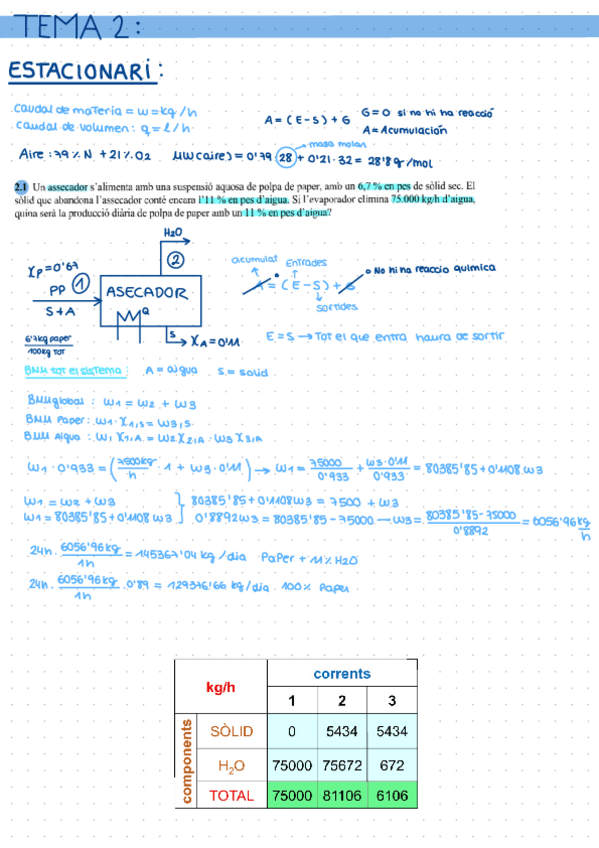 TEMA 2:
ESTACIONARI:
caudal de materia = w = kg/h
caudal de volumen: q = l/h
A = (E-S) + G
G=0 si no hi ha reacció
A = Acumulación
massa molar
Aire: 79% N + 21% O2 MW(aire) = 0'79·28 + 0'21·32 = 28'8 g/mol
2.1 Un assecador s'alimenta amb una suspensió aquosa de polpa de paper, amb un 6,7 % en pes de sòlid sec. El
sòlid que abandona l'assecador conté encara l'11 % en pes d'aigua. Si l'evaporador elimina 75.000 kg/h d'aigua,
quina serà la producció diària de polpa de paper amb un 11 % en pes d'aigua?
H2O
2
Xp=0'67
PP 1
S+A
ASECADOR
Q
S
XA=0'11
6'7kg paper
100kg TOT
acumulat
Entrades
No hi ha reaccio quimica
A = (E-S) + G
sortides
E = S → Tot el que entra haura de sortir
BMM tot el sistema: A = aigua S = solid
BMM global: w1 = w2 + w3
BMM Paper: w1·X1,S = w3,S
BMM Aigua: w1 X1,A = w2 X2,A · w3 X3,A
w1·0'933 = (7500kg/h · 1 + w3·0'11) → w1 = 75000/0'933 + w3·0'11/0'933 = 80385'85 + 0'1108 w3
w1 = w2 + w3
w1 = 80385'85 + 0'1108 w3
80385'85 + 0'1108w3 = 7500 + w3
0'8892w3 = 80385'85 - 75000 → w3 = 80385'85-75000/0'8892 = 6056'96 kg/h
24h · 6056'96 kg/1h = 145367'04 kg/dia Paper + 11% H2O
24h · 6056'96 kg/1h · 0'89 = 129376'66 kg/dia · 100% Paper
kg/h corrents
1 2 3
components
SÒLID 0 5434 5434
H2O 75000 75672 672
TOTAL 75000 81106 6106